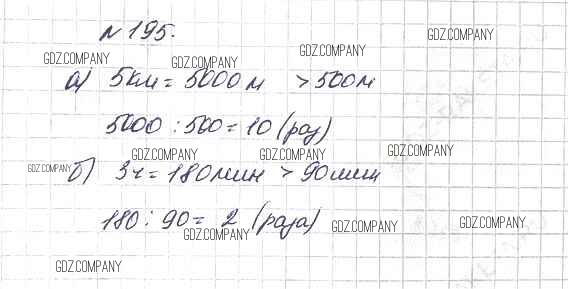 №195.
GDZ.COMPANY GDZ.COMPANY GDZ.COMPANY GDZ.COMPANY
а) 5км = 5000м > 500м
5000 : 500 = 10 (раз)
GDZ.COMPANY GDZ.COMPANY GDZ.COMPANY GDZ.COMPANY
б) 3ч = 180мин > 90мин
180 : 90 = 2 (раза)
GDZ.COMPANY GDZ.COMPANY GDZ.COMPANY
GDZ.COMPANY